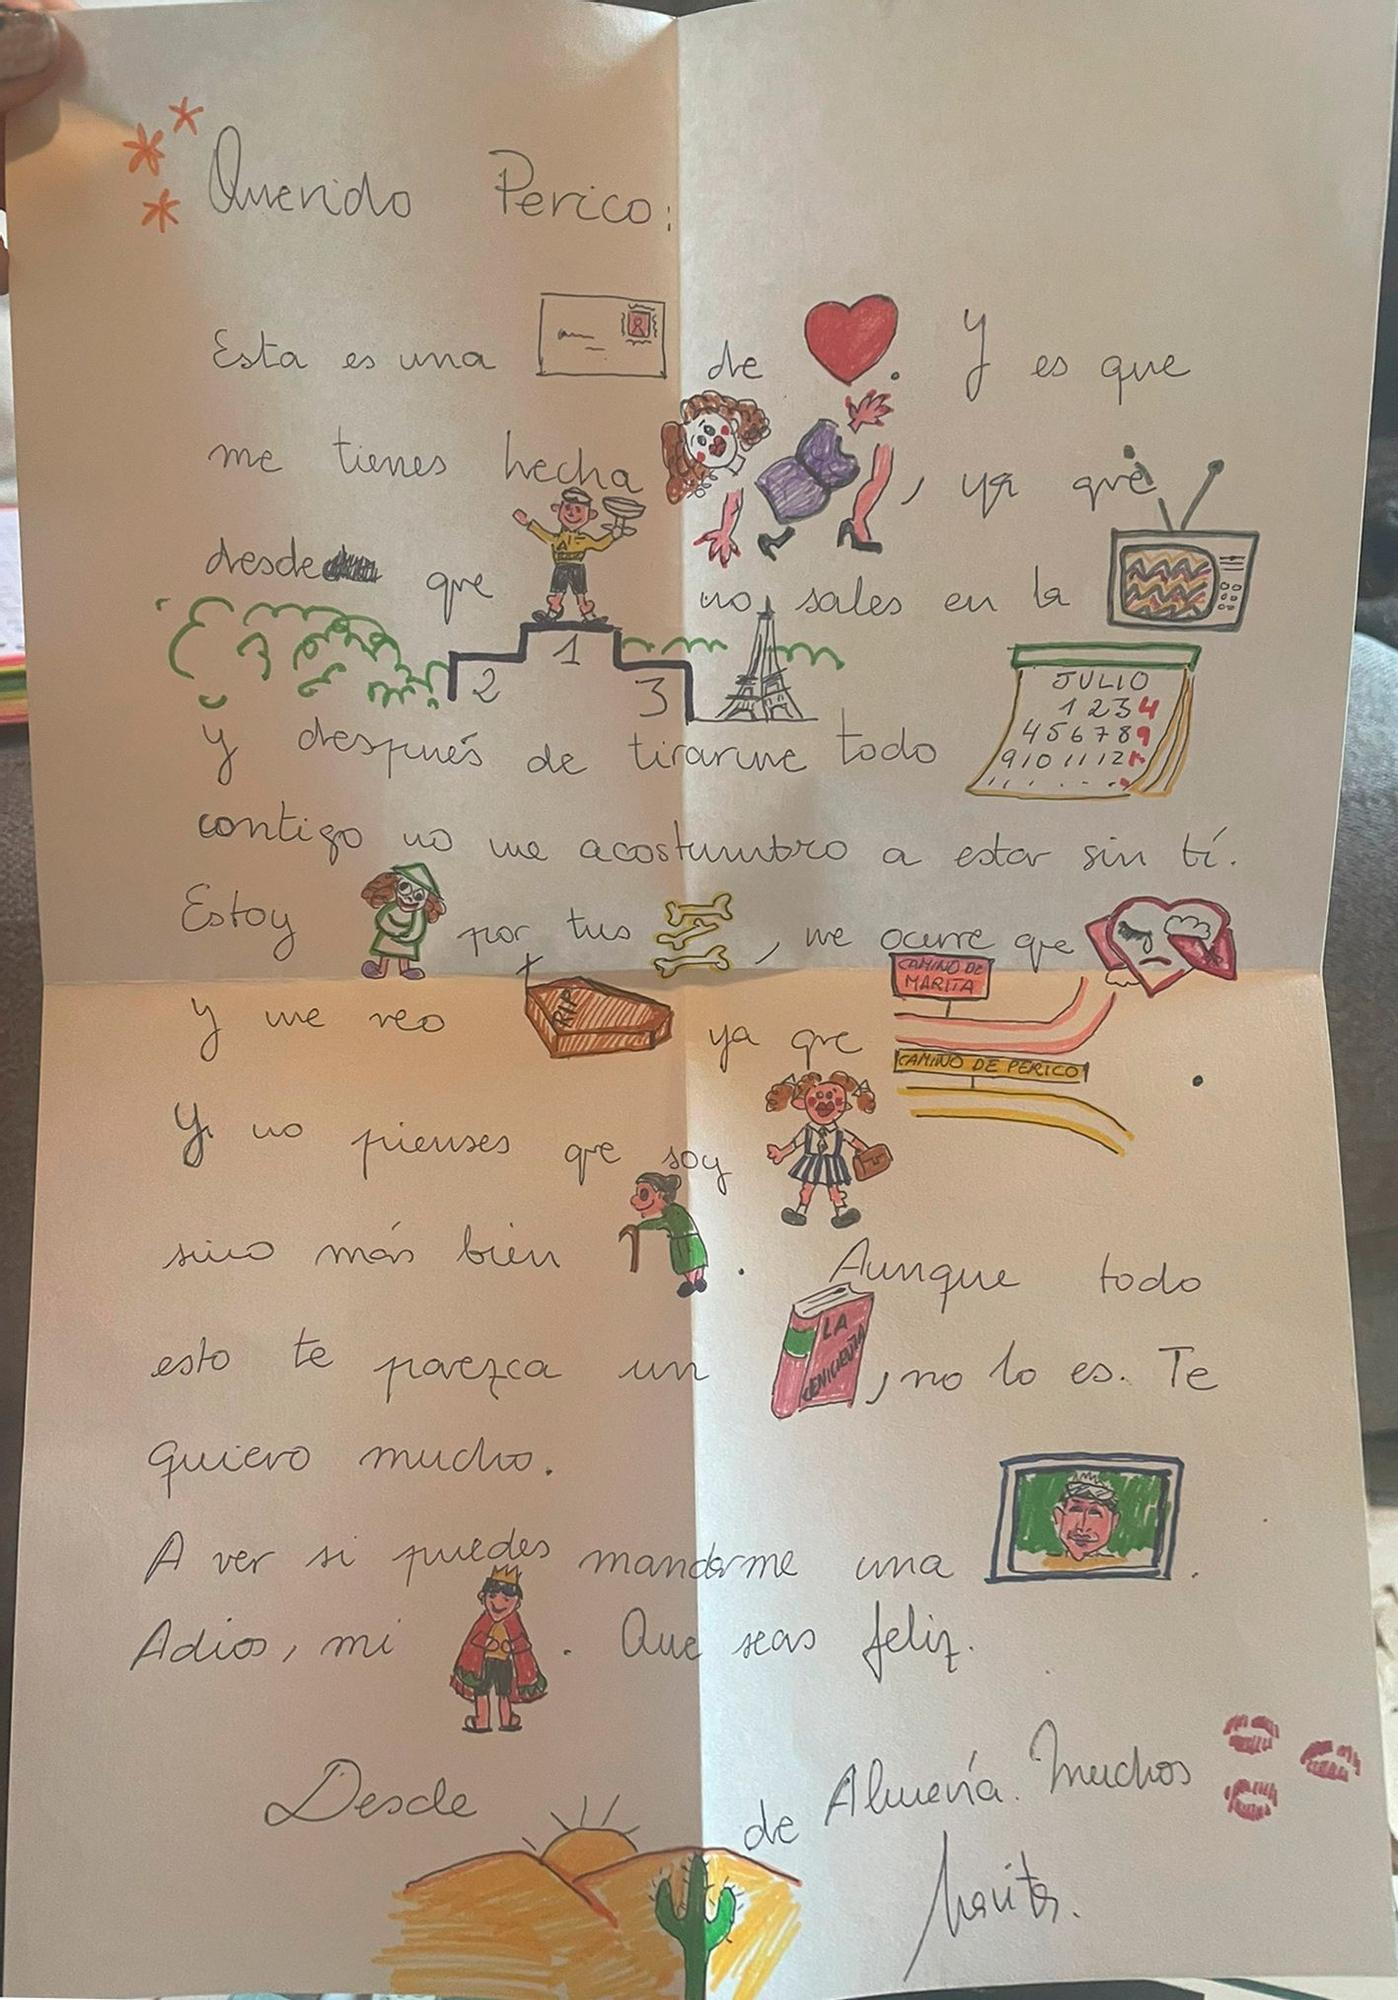 Querido Perico:
Esta es una de . Y es que
me tienes hecha , ya que
desde que no sales en la
1
2
3
JULIO
1 2 3 4
4 5 6 7 8 9
9 10 11 12
y después de tirarme todo
contigo no me acostumbro a estar sin tí.
Estoy por tus , me ocurre que
CAMINO DE
MARITA
y me veo ya que
RIP
CAMINO DE PERICO
Y no pienses que soy
sino más bien . Aunque todo
esto te parezca un , no lo es. Te
LA
CENICIENTA
quiero mucho.
A ver si puedes mandarme una .
Adios, mi . Que seas feliz.
Desde de Almería. Muchos
Marita.